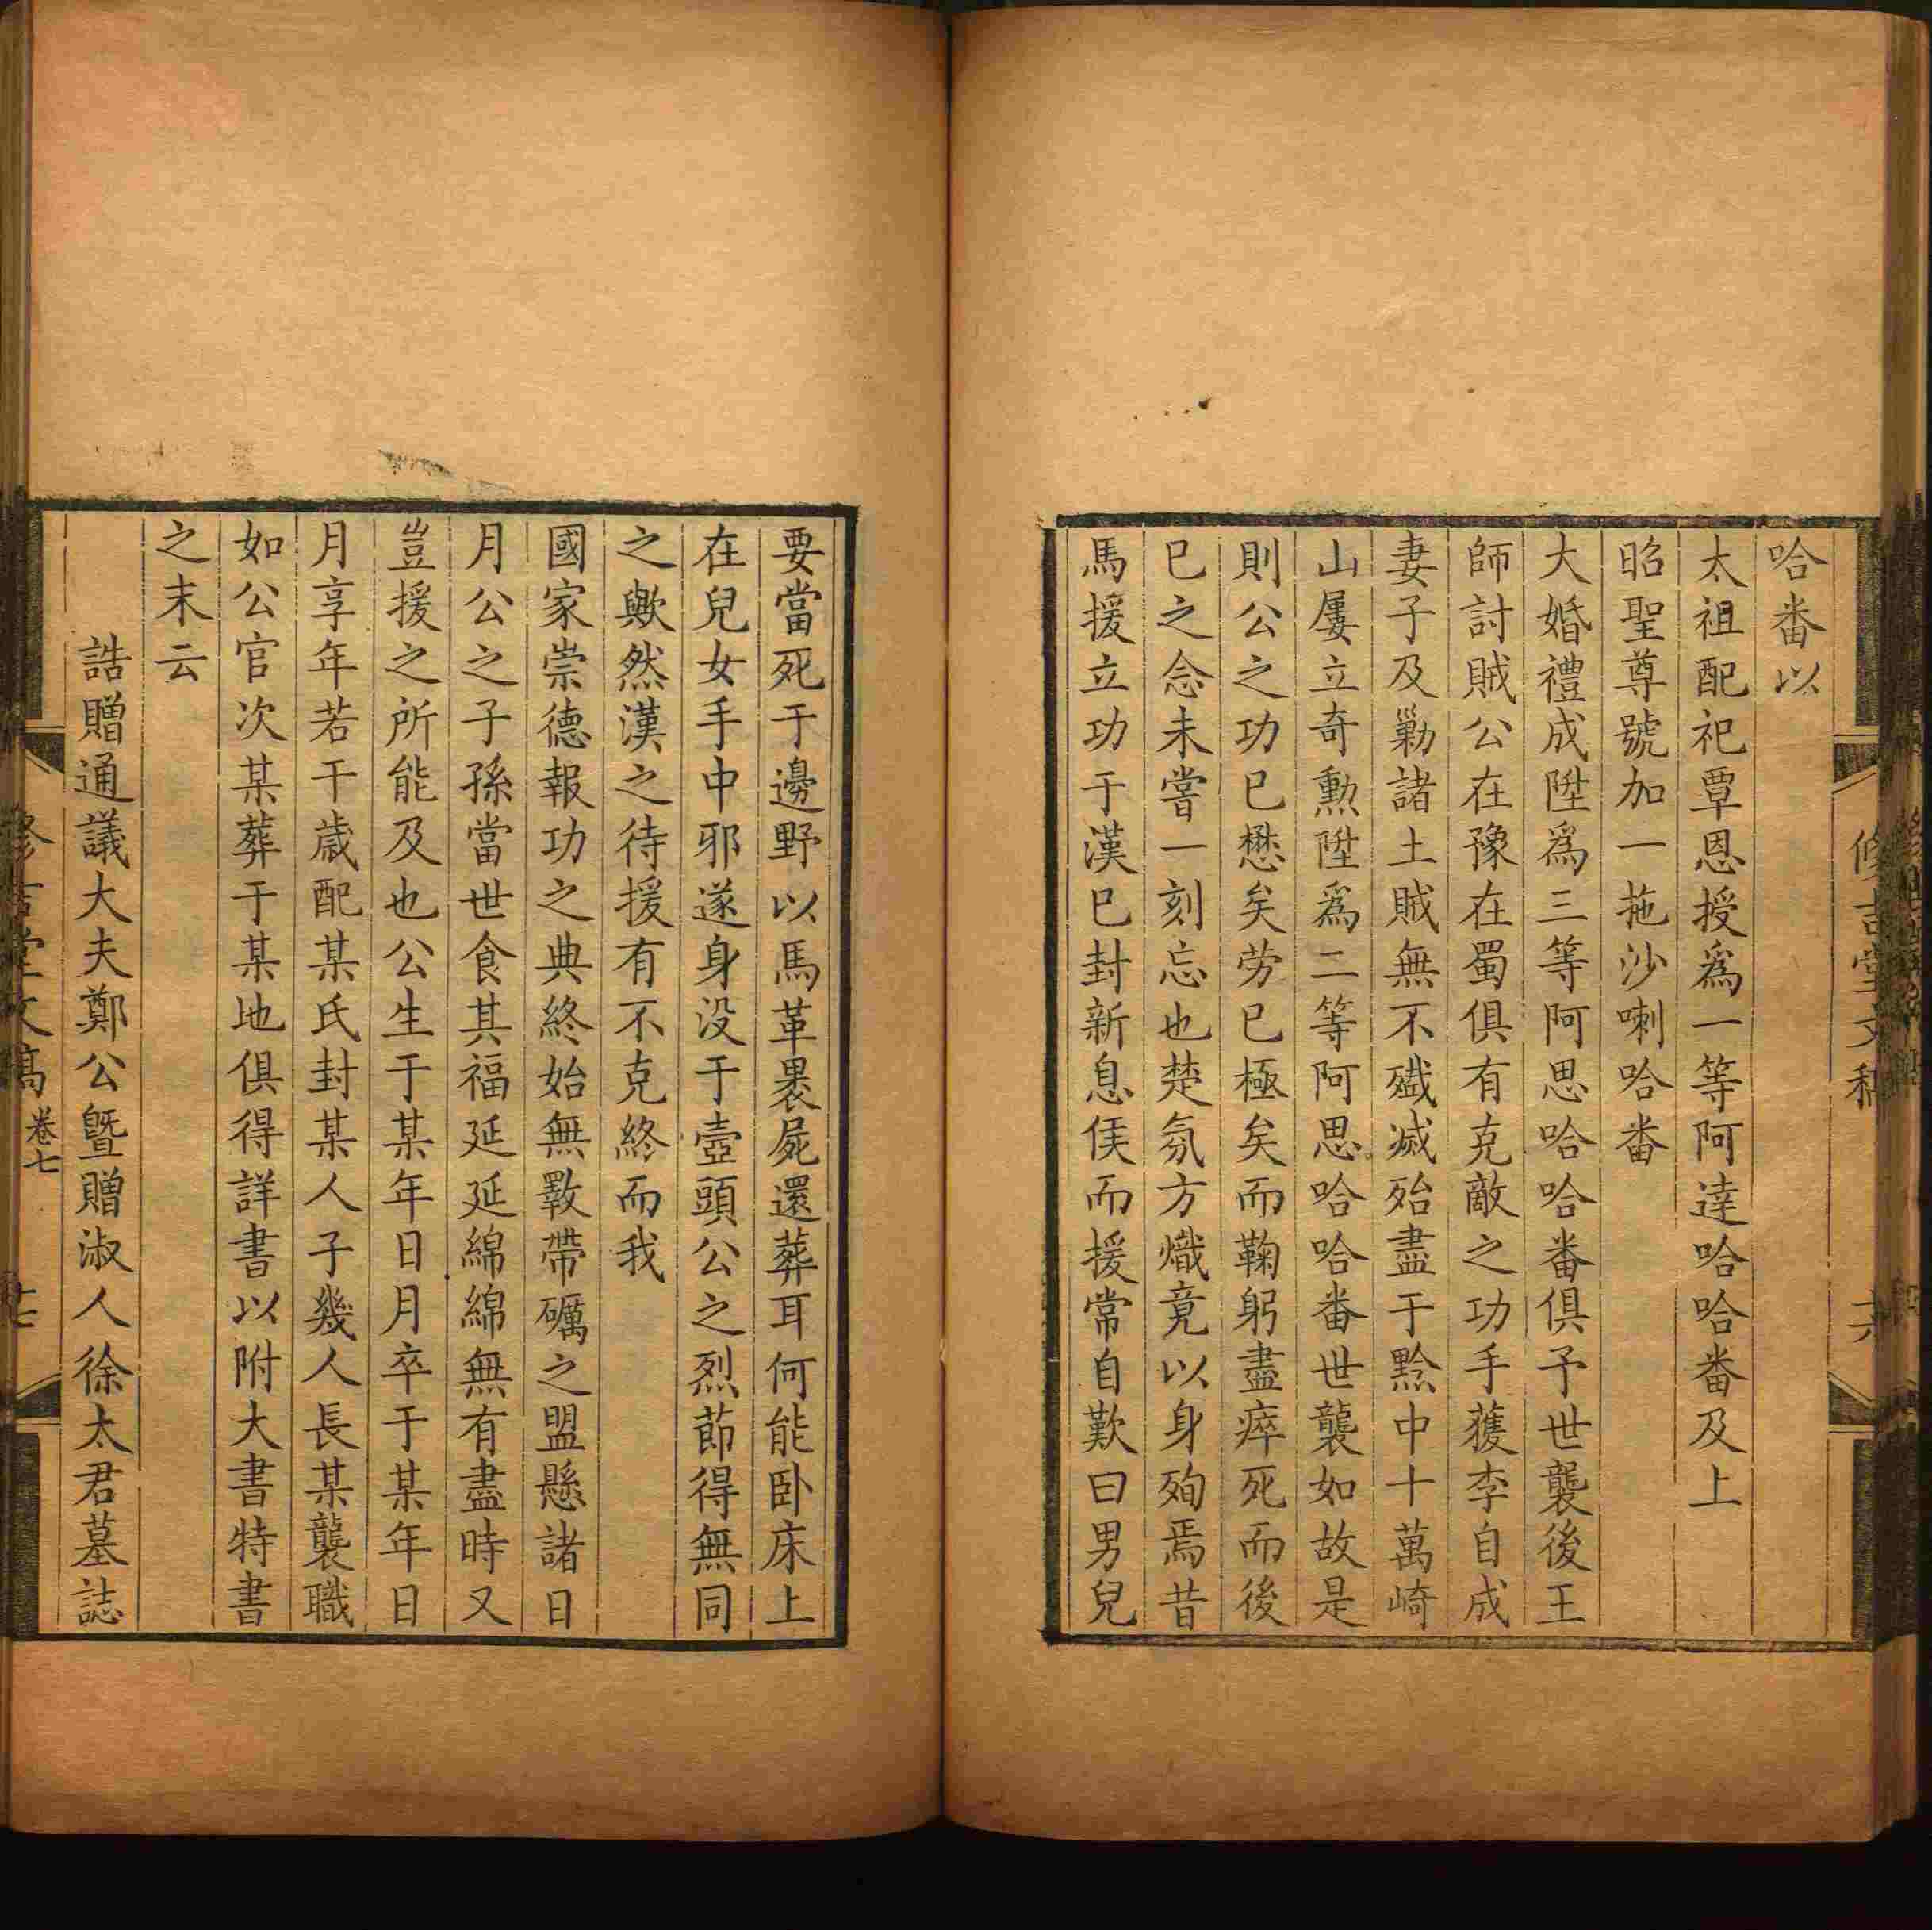 哈番以
太祖配祀覃恩授爲一等阿達哈哈番及上
昭聖尊號加一拖沙喇哈番
大婚禮成陞爲三等阿思哈哈番俱予世襲後王
師討賊公在豫在蜀俱有克敵之功手獲李自成
妻子及勦諸土賊無不殱滅殆盡于黔中十萬崎
山屢立奇勲陞爲二等阿思哈哈番世襲如故是
則公之功已懋矣劳已極矣而鞠躬盡瘁死而後
已之念未嘗一刻忘也楚氛方熾竟以身殉焉昔
馬援立功于漢已封新息侯而援常自歎曰男兒
要當死于邊野以馬革褁屍還葬耳何能卧床上
在兒女手中邪遂身没于壺頭公之烈莭得無同
之歟然漢之待援有不克終而我
國家崇德報功之典終始無斁帶礪之盟懸諸日
月公之子孫當世食其福延延綿綿無有盡時又
豈援之所能及也公生于某年日月卒于某年日
月享年若干歲配某氏封某人子幾人長某襲職
如公官次某葬于某地俱得詳書以附大書特書
之末云
誥贈通議大夫鄭公暨贈淑人徐太君墓誌
卷七